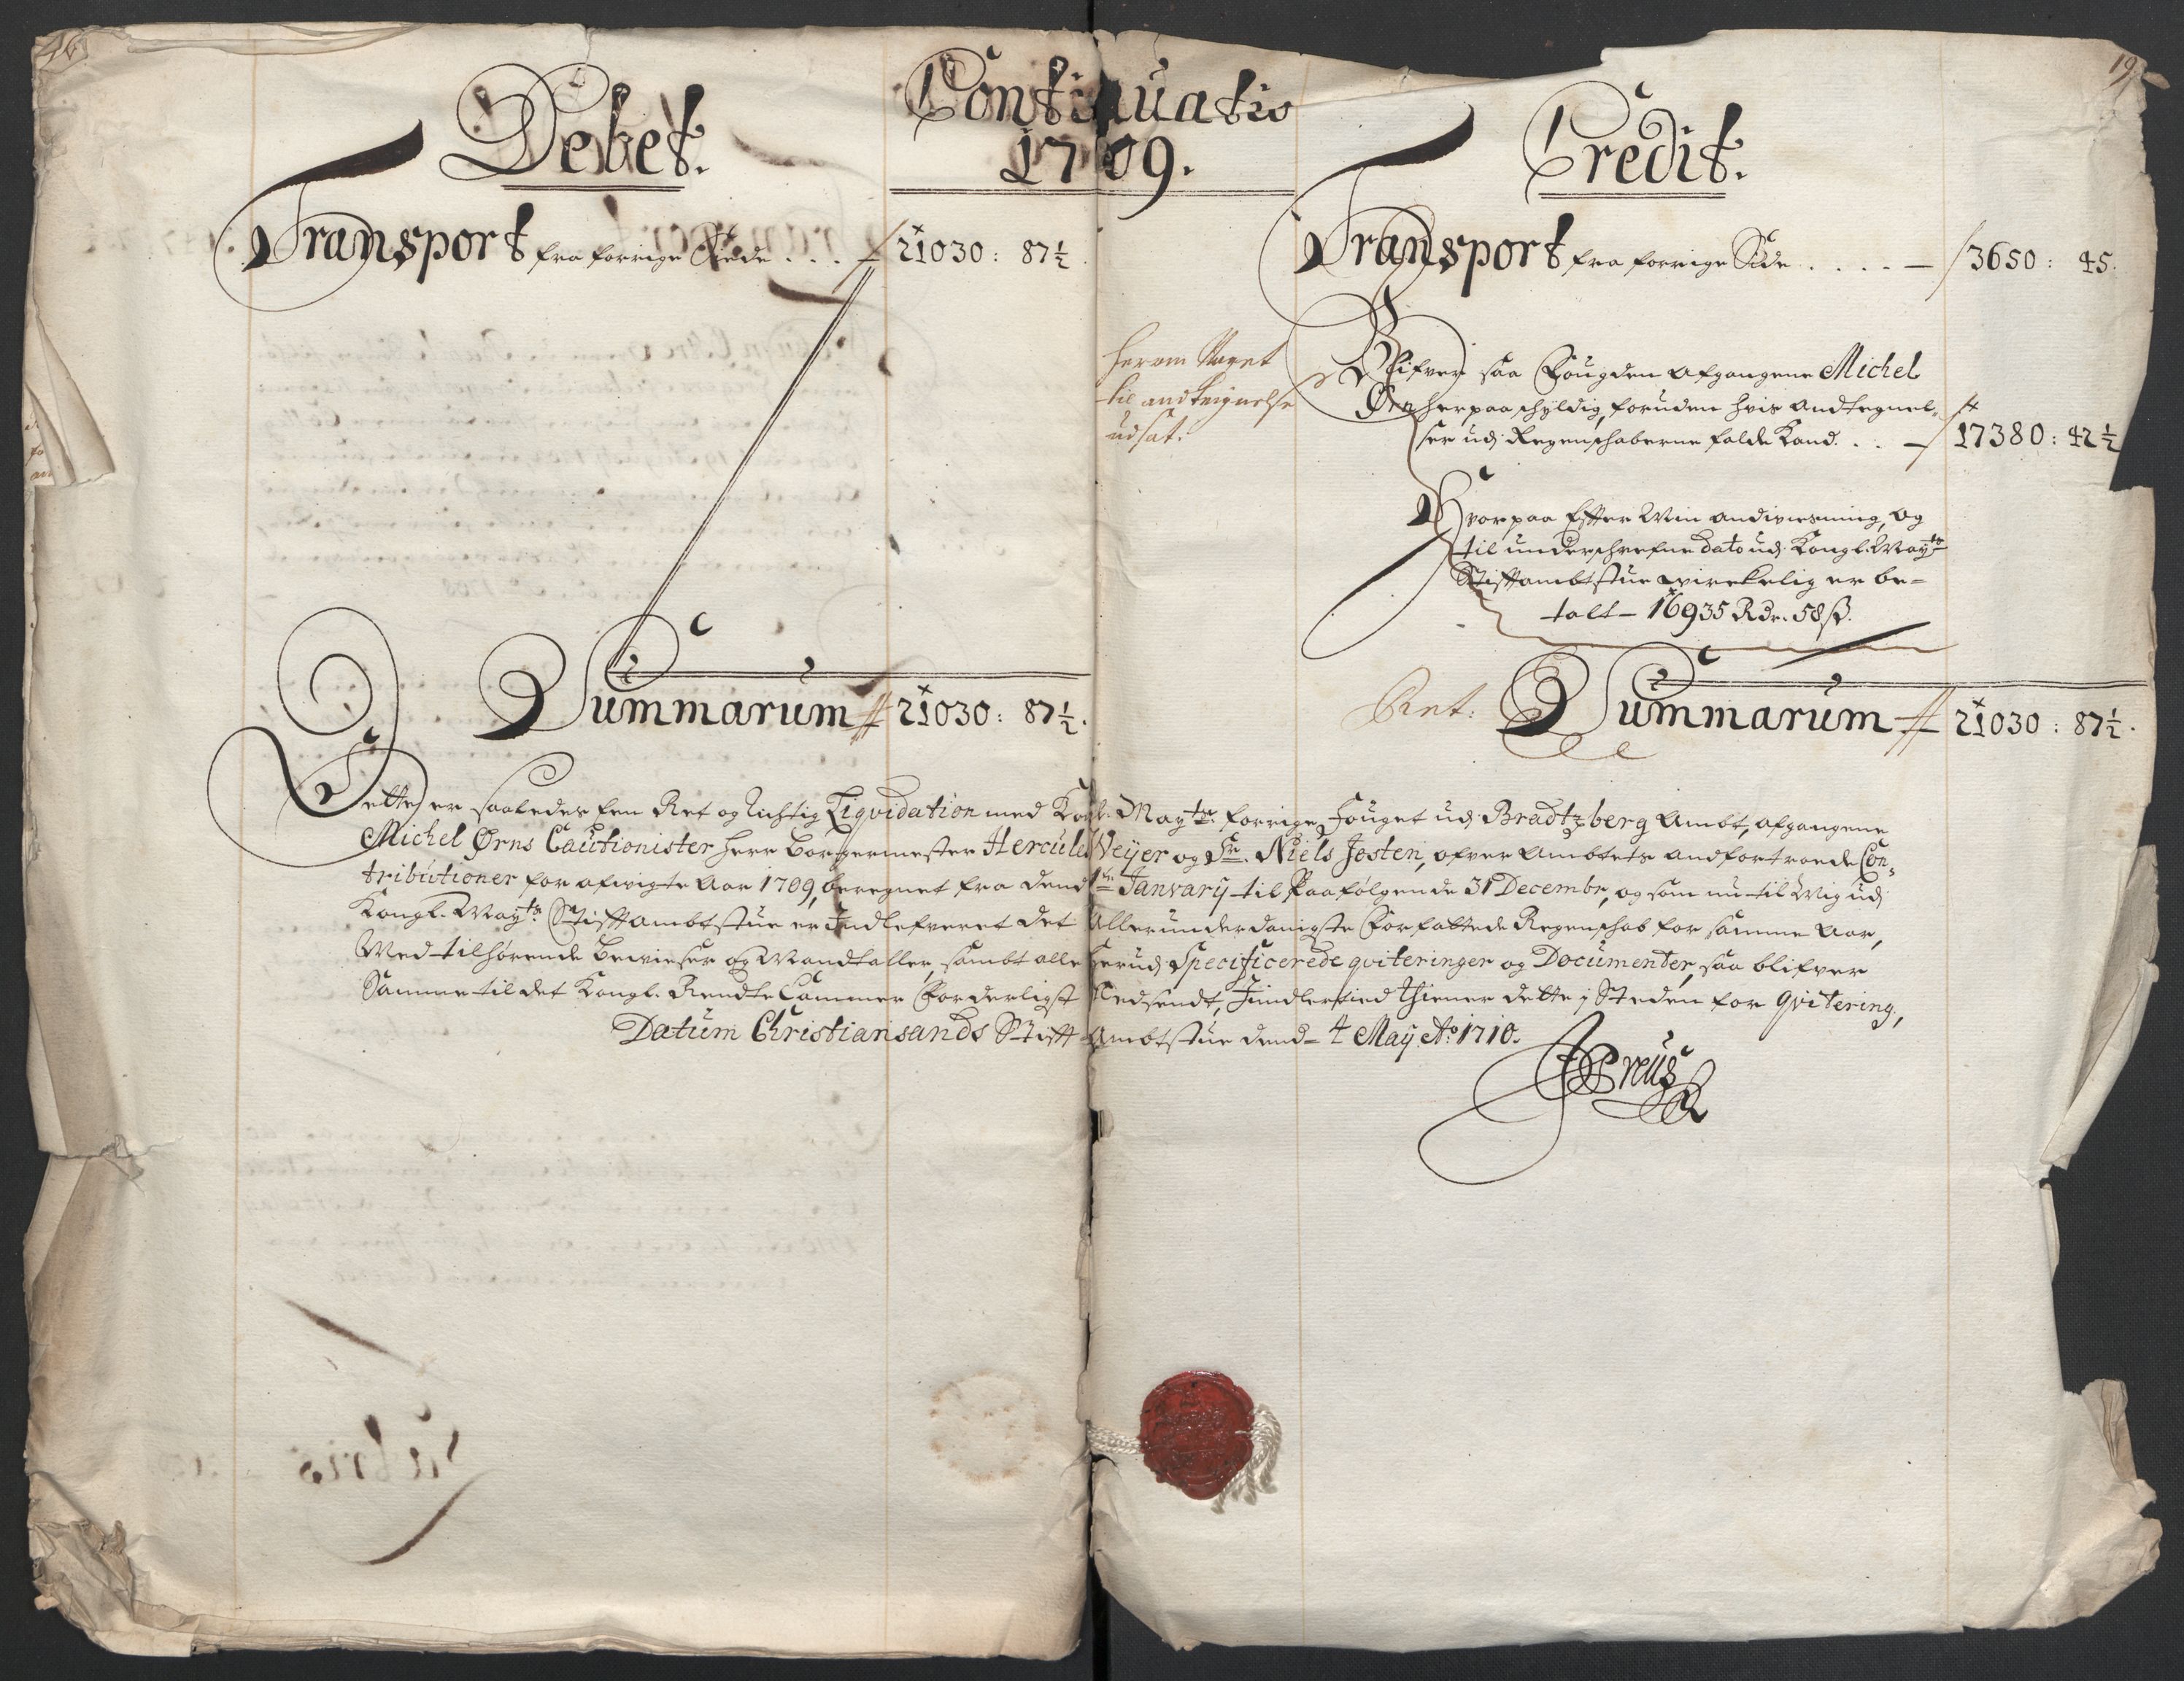 46
19
Continuatio
1709.
Debet.
Transport fra forrige Siede . . . — 21030: 87½
Summarum 21030: 87½.
Credit.
Transport fra forrige Side . . . . — 3650: 45.
herom Noget
til andteignelse
udsat.
Blifver saa Fougden afgangene Michel
Ørn herpaa schyldig, foruden hvis andtegnel-
ser udj Regenschaberne falde kand. . . — 17380: 42½
Hvorpaa Efter Min andviesning, og
til underschrefne dato udj Kongl. Mayts
Stiftambtstue virkelig er be-
talt — 16935 Rdr. 58 ß.
Ret: Summarum 21030: 87½.
Dette er saaledes een Ret og Rictig Liqvidation med Kongl. Mayts: forrige Fouget udj Bradtzberg Ambt, afgangene
Michel Ørns Cautionister Herr Borgermester Hercules Weyer og Sr. Niels Jesten, ofver Ambtets andfortroede Con-
tributioner for afvigte Aar 1709, beregnet fra dend 1te Janvary til Paafølgende 31 Decembr, og som nu til Mig udj
Kongl. Mayts Stiftambtstue er Indlefveret det Allerunderdanigste Forfattede Regenschab for samme Aar,
Med tilhørende Bevieser og Mandtaller, sambt alle herudj Specificerede qviteringer og Documenter, saa blifver
Samme til det Kongl. Rendte Cammer Forderligst Nedsendt, Jmidlertied thiener dette j Steden for qvitering,
Datum Christiansands Stift Ambtstue dend 4 May Ao 1710.